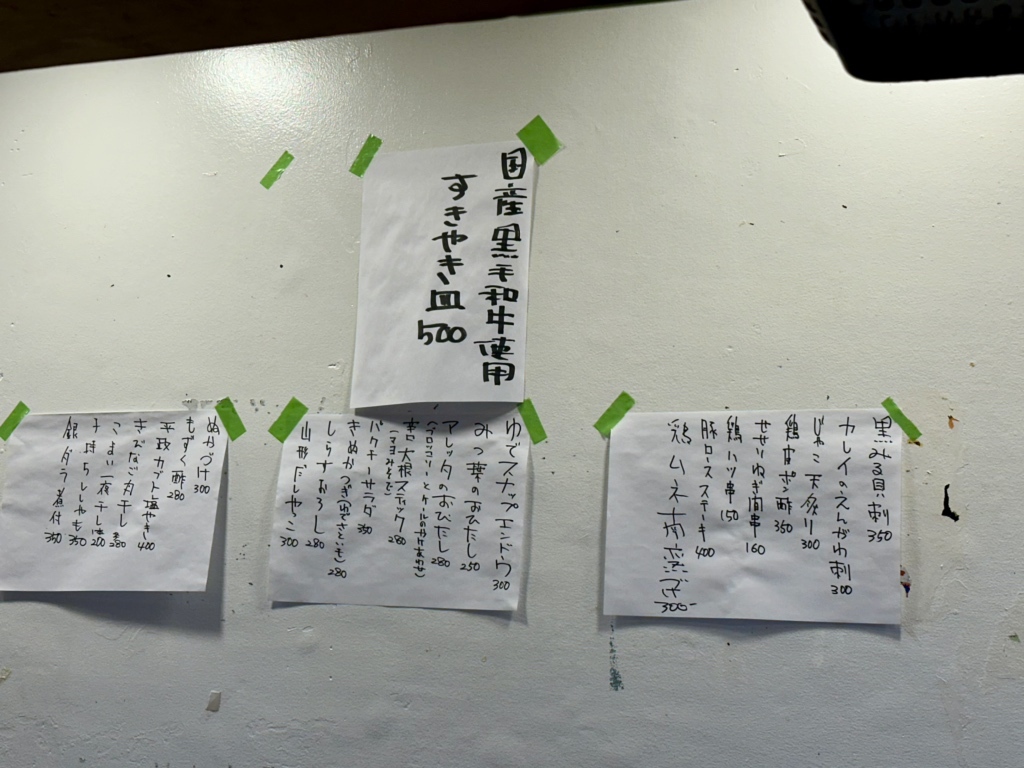 国産黒毛和牛使用
すきやき皿 500
黒みる貝刺 350
カレイのえんがわ刺 300
じゃこ天炙り 300
鶏皮ポン酢 350
せせりねぎ間串 160
鶏ハツ串 150
豚ロースステーキ 400
鶏ムネ南蛮づけ 300-
ゆでスナップエンドウ 300
みつ葉のおひたし 250
アレッタのおひたし 280
(ブロッコリーとケールのかけあわせ)
大根スティック 280
パクチーサラダ 350
きぬかつぎ(ゆでさといも) 280
しらすおろし 280
山形だしやっこ 300
ぬか づけ 300
もずく酢 280
平政カット塩やき 400
きびなご丸干し 280
こまい一夜干し 200
子持ちししゃも 350
銀ダラ煮付 350